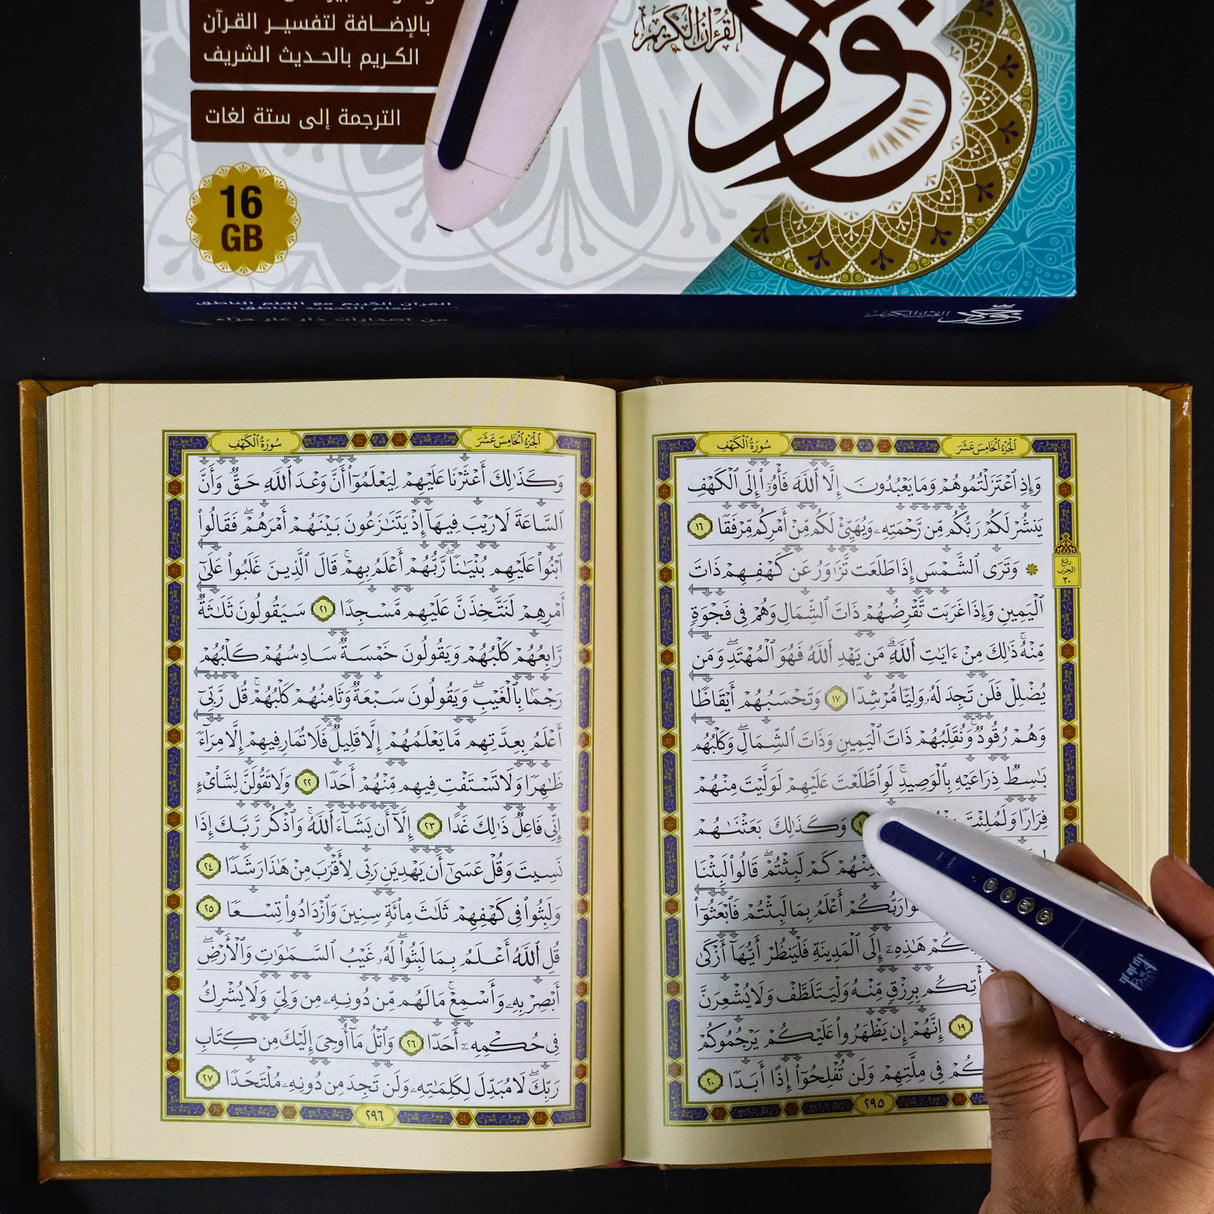 بالإضافة لتفسير القرآن
الكريم بالحديث الشريف
الترجمة إلى ستة لغات
16
GB
القرآن الكريم
نور
القرآن الكريم مع القلم الناطق
معلم التجويد الناطق
من اصدارات دار غار حراء
القرآن الكريم
الجزء الخامس عشر
سورة الكهف
وَإِذِ ٱعۡتَزَلۡتُمُوهُمۡ وَمَا يَعۡبُدُونَ إِلَّا ٱللَّهَ فَأۡوُۥٓاْ إِلَى ٱلۡكَهۡفِ
يَنشُرۡ لَكُمۡ رَبُّكُم مِّن رَّحۡمَتِهِۦ وَيُهَيِّئۡ لَكُم مِّنۡ أَمۡرِكُم مِّرۡفَقٗا ١٦
۞ وَتَرَى ٱلشَّمۡسَ إِذَا طَلَعَت تَّزَٰوَرُ عَن كَهۡفِهِمۡ ذَاتَ
ٱلۡيَمِينِ وَإِذَا غَرَبَت تَّقۡرِضُهُمۡ ذَاتَ ٱلشِّمَالِ وَهُمۡ فِي فَجۡوَةٖ
مِّنۡهُۚ ذَٰلِكَ مِنۡ ءَايَٰتِ ٱللَّهِۗ مَن يَهۡدِ ٱللَّهُ فَهُوَ ٱلۡمُهۡتَدِۖ وَمَن
يُضۡلِلۡ فَلَن تَجِدَ لَهُۥ وَلِيّٗا مُّرۡشِدٗا ١٧ وَتَحۡسَبُهُمۡ أَيۡقَاظٗا
وَهُمۡ رُقُودٞۚ وَنُقَلِّبُهُمۡ ذَاتَ ٱلۡيَمِينِ وَذَاتَ ٱلشِّمَالِۖ وَكَلۡبُهُم
بَٰسِطٞ ذِرَاعَيۡهِ بِٱلۡوَصِيدِۚ لَوِ ٱطَّلَعۡتَ عَلَيۡهِمۡ لَوَلَّيۡتَ مِنۡهُمۡ
فِرَارٗا وَلَمُلِئۡتَ وَكَذَٰلِكَ بَعَثۡنَٰهُمۡ
مِّنۡهُمۡ كَمۡ لَبِثۡتُمۡۖ قَالُواْ لَبِثۡنَا
رَبُّكُمۡ أَعۡلَمُ بِمَا لَبِثۡتُمۡ فَٱبۡعَثُوٓاْ
هَٰذِهِۦٓ إِلَى ٱلۡمَدِينَةِ فَلۡيَنظُرۡ أَيُّهَآ أَزۡكَىٰ
بِرِزۡقٖ مِّنۡهُ وَلۡيَتَلَطَّفۡ وَلَا يُشۡعِرَنَّ
١٩ إِنَّهُمۡ إِن يَظۡهَرُواْ عَلَيۡكُمۡ يَرۡجُمُوكُمۡ
فِي مِلَّتِهِمۡ وَلَن تُفۡلِحُوٓاْ إِذًا أَبَدٗا ٢٠
ربع
الحزب
٣٠
٢٩٥
الجزء الخامس عشر
سورة الكهف
وَكَذَٰلِكَ أَعۡثَرۡنَا عَلَيۡهِمۡ لِيَعۡلَمُوٓاْ أَنَّ وَعۡدَ ٱللَّهِ حَقّٞ وَأَنَّ
ٱلسَّاعَةَ لَا رَيۡبَ فِيهَآ إِذۡ يَتَنَٰزَعُونَ بَيۡنَهُمۡ أَمۡرَهُمۡۖ فَقَالُواْ
ٱبۡنُواْ عَلَيۡهِم بُنۡيَٰنٗاۖ رَّبُّهُمۡ أَعۡلَمُ بِهِمۡۚ قَالَ ٱلَّذِينَ غَلَبُواْ عَلَىٰٓ
أَمۡرِهِمۡ لَنَتَّخِذَنَّ عَلَيۡهِم مَّسۡجِدٗا ٢١ سَيَقُولُونَ ثَلَٰثَةٞ
رَّابِعُهُمۡ كَلۡبُهُمۡ وَيَقُولُونَ خَمۡسَةٞ سَادِسُهُمۡ كَلۡبُهُمۡ
رَجۡمَۢا بِٱلۡغَيۡبِۖ وَيَقُولُونَ سَبۡعَةٞ وَثَامِنُهُمۡ كَلۡبُهُمۡۚ قُل رَّبِّيٓ
أَعۡلَمُ بِعِدَّتِهِم مَّا يَعۡلَمُهُمۡ إِلَّا قَلِيلٞۗ فَلَا تُمَارِ فِيهِمۡ إِلَّا مِرَآءٗ
ظَٰهِرٗا وَلَا تَسۡتَفۡتِ فِيهِم مِّنۡهُمۡ أَحَدٗا ٢٢ وَلَا تَقُولَنَّ لِشَاْيۡءٍ
إِنِّي فَاعِلٞ ذَٰلِكَ غَدًا ٢٣ إِلَّآ أَن يَشَآءَ ٱللَّهُۚ وَٱذۡكُر رَّبَّكَ إِذَا
نَسِيتَ وَقُلۡ عَسَىٰٓ أَن يَهۡدِيَنِ رَبِّي لِأَقۡرَبَ مِنۡ هَٰذَا رَشَدٗا ٢٤
وَلَبِثُواْ فِي كَهۡفِهِمۡ ثَلَٰثَ مِاْئَةٖ سِنِينَ وَٱزۡدَادُواْ تِسۡعٗا ٢٥
قُلِ ٱللَّهُ أَعۡلَمُ بِمَا لَبِثُواْۖ لَهُۥ غَيۡبُ ٱلسَّمَٰوَٰتِ وَٱلۡأَرۡضِۖ
أَبۡصِرۡ بِهِۦ وَأَسۡمِعۡۚ مَا لَهُم مِّن دُونِهِۦ مِن وَلِيّٖ وَلَا يُشۡرِكُ
فِي حُكۡمِهِۦٓ أَحَدٗا ٢٦ وَٱتۡلُ مَآ أُوحِيَ إِلَيۡكَ مِن كِتَابِ
رَبِّكَۖ لَا مُبَدِّلَ لِكَلِمَٰتِهِۦ وَلَن تَجِدَ مِن دُونِهِۦ مُلۡتَحَدٗا ٢٧
٢٩٦